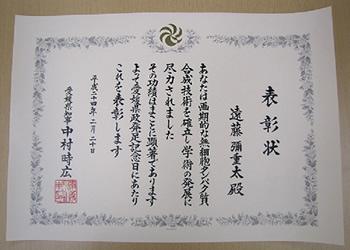 表彰状
遠藤 彌重太 殿
あなたは画期的な無細胞タンパク質
合成技術を確立し学術の発展に
尽力されました
その功績はまことに顕著であります
よって愛媛県政発足記念日にあたり
これを表彰します
平成二十四年二月二十日
愛媛県知事 中村時広